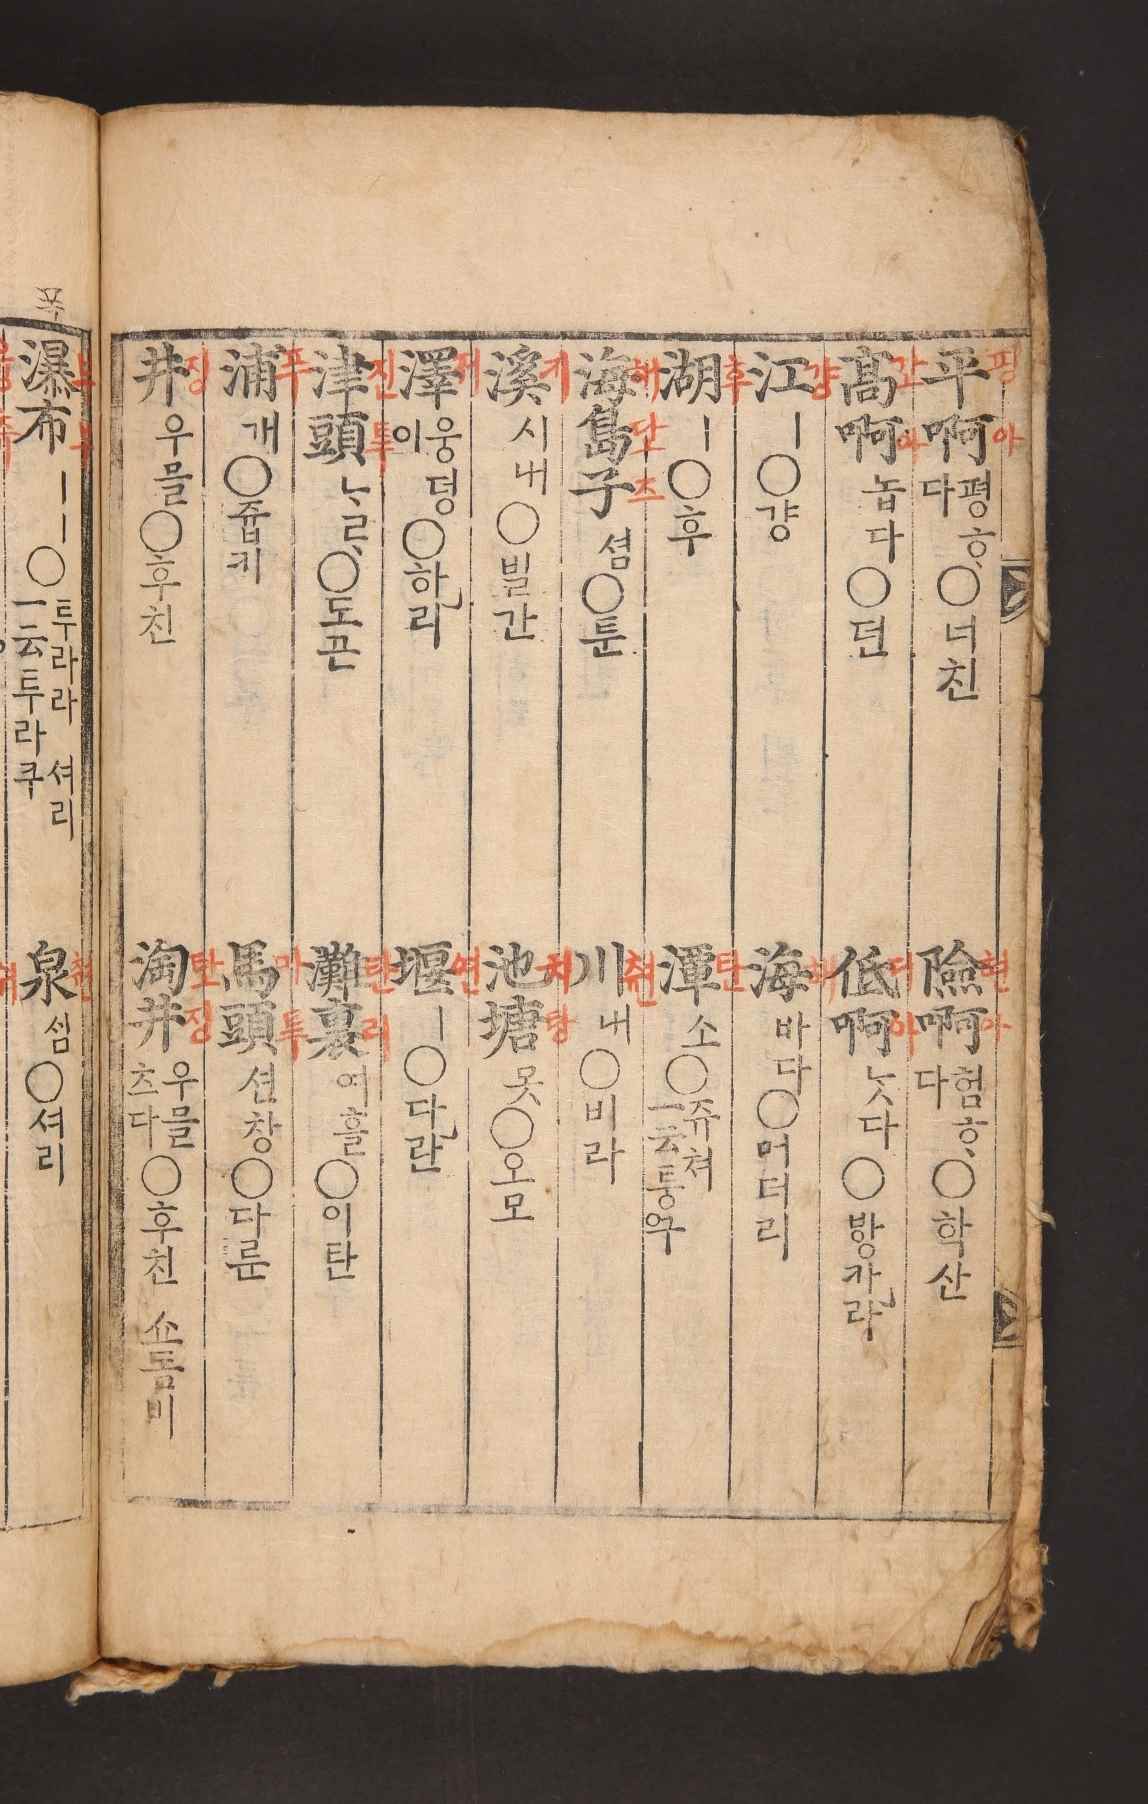 平啊 평ᄒᆞ다 ○너친
평아
險啊 험ᄒᆞ다 ○학산
현아
高啊 놉다 ○던
갸아
低啊 ᄂᆞᆺ다 ○방카라
디아
江 ㅣ○걍
걍
海 바다 ○머더리
해
湖 ㅣ○후
후
潭 소 ○쥬쳐 一云 퉁쿠
탄
海島子 셤 ○툰
해단츠
川 내 ○비라
쳔
溪 시내 ○빌간
키
池塘 못 ○오모
치탕
澤 웅덩이 ○하리
저
堰 ㅣ○다란
연
津頭 ᄂᆞᄅᆞ ○도곤
진투
灘裏 여흘 ○이탄
탄리
浦 개 ○쥽키
푸
馬頭 션창 ○다룬
마투
井 우믈 ○후친
징
淘井 우믈 츠다 ○후친 쇼돔비
탄징
폭
瀑布 ㅣㅣ○투라라 셔리 一云 투라쿠
泉 셤 ○셔리
쳔